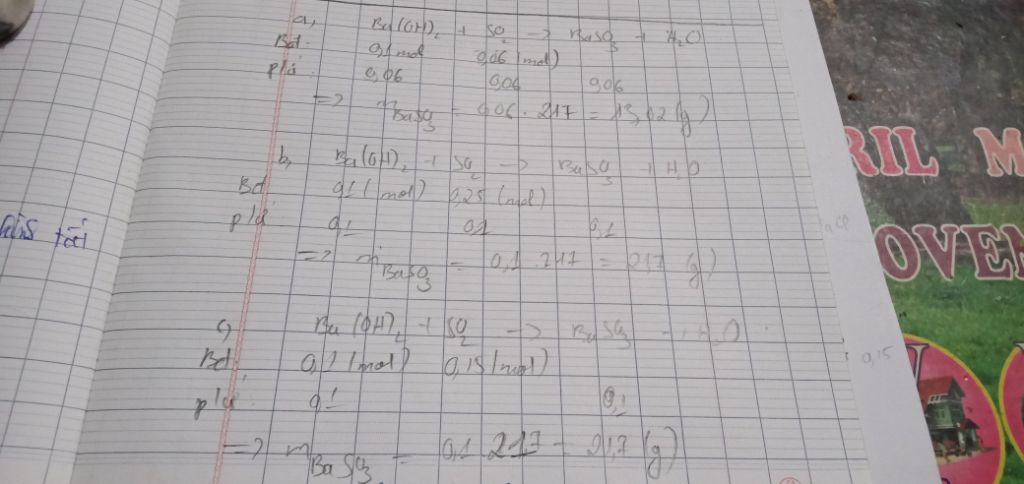 a, Ba(OH)₂ + SO₂ → BaSO₃ + H₂O
Bđ: 0,1 mol 0,06 (mol)
p/ứ: 0,06 0,06 0,06
=> mBaSO₃ = 0,06 . 217 = 13,02 (g)
b, Ba(OH)₂ + SO₂ → BaSO₃ + H₂O
Bđ 0,1 (mol) 0,25 (mol)
p/ứ 0,1 0,1 0,1
=> mBaSO₃ = 0,1 . 217 = 21,7 (g)
c, Ba(OH)₂ + SO₂ → BaSO₃ + H₂O
Bđ: 0,1 (mol) 0,15 (mol)
p/ứ: 0,1 0,1
=> mBaSO₃ = 0,1 217 = 21,7 (g)
0,15
RIL M
OVEN